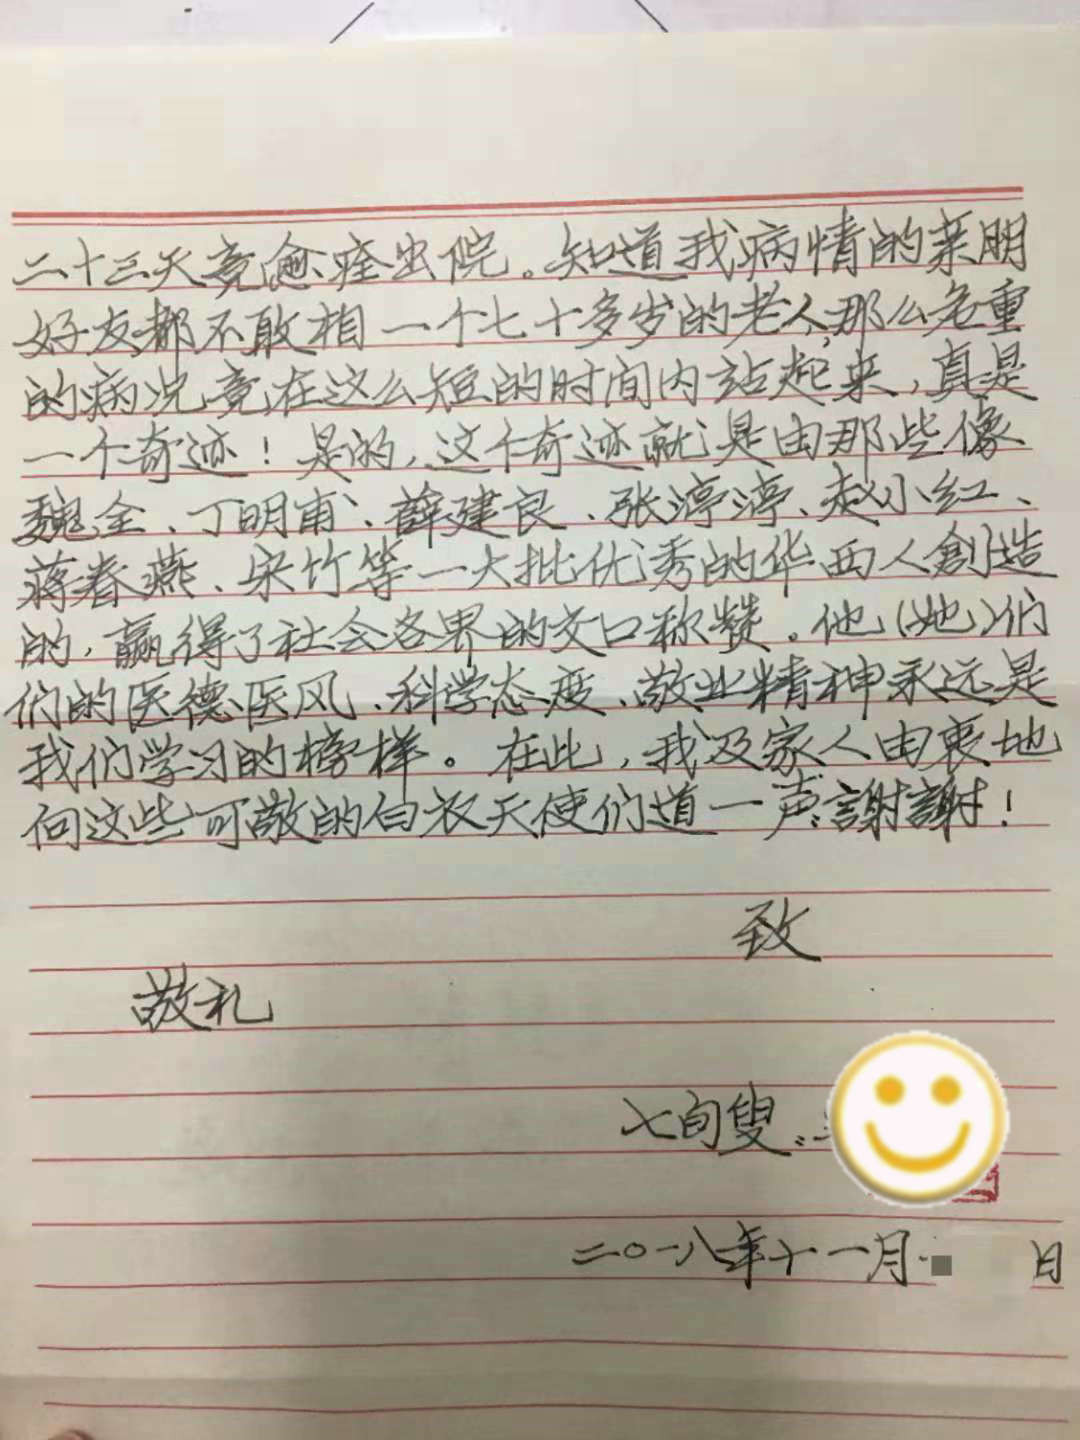 二十三天竟愈痊出院。知道我病情的亲朋
好友都不敢相一个七十多岁的老人,那么危重
的病况竟在这么短的时间内站起来,真是
一个奇迹!是的,这个奇迹就是由那些像
魏全、丁明甫、薛建良、张渟渟、赵小红、
蒋春燕、宋竹等一大批优秀的华西人創造
的,赢得了社会各界的交口称赞。他(她)们
们的医德医风、科学态度、敬业精神永远是
我们学习的榜样。在此,我及家人由衷地
向这些可敬的白衣天使们道一声謝謝!
致
敬礼
七旬叟:
二〇一八年十一月 日